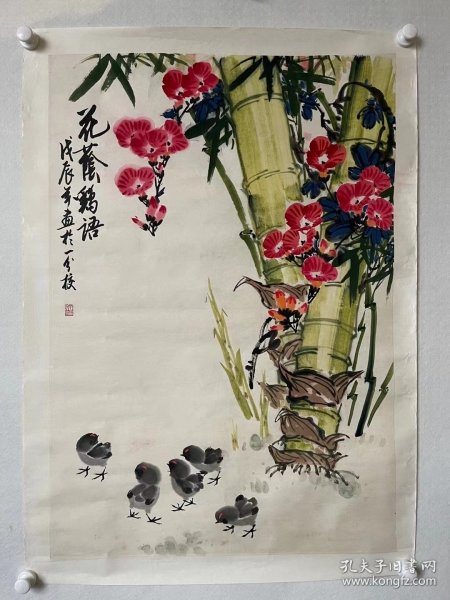 花荫鸡语
戊辰年画于一分校
孔夫子旧书网
www.kongfz.com